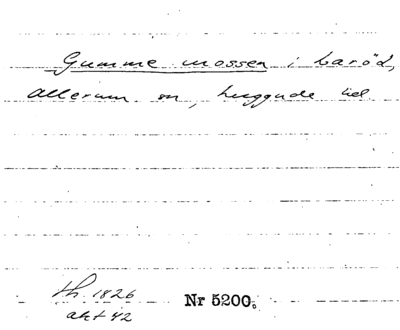 Gumme mossen i baröd,
Allerum sn, huggude
th. 1826
akt 42
Nr 5200.